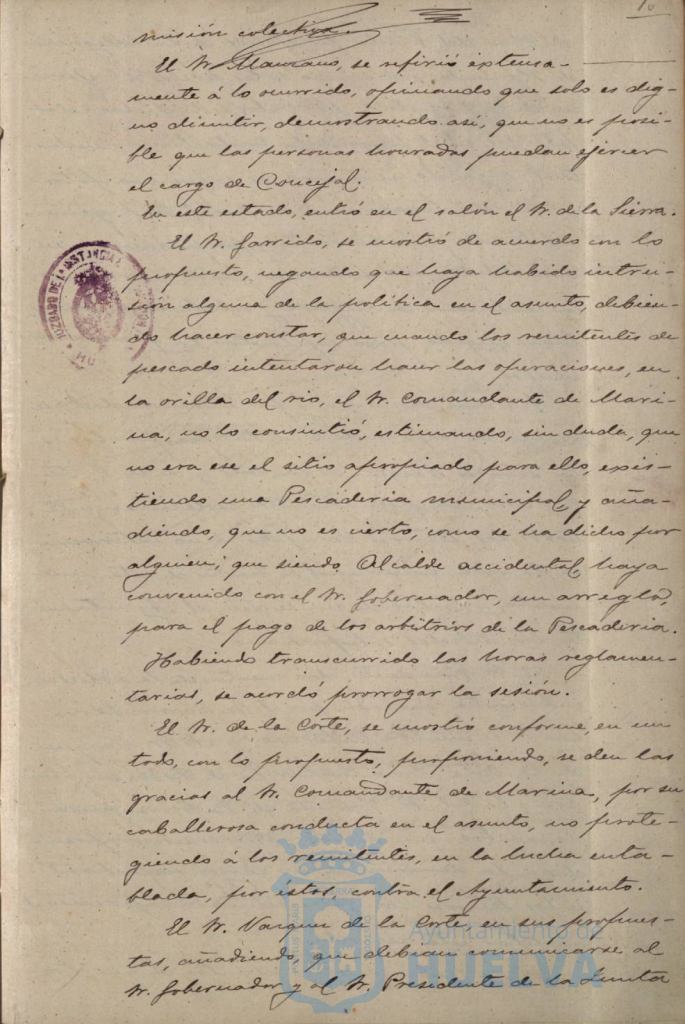 misión colectiva.
El Sr. Manzano, se refirió extensa-
mente á lo ocurrido, opinando que solo es dig-
no dimitir, demostrando así, que no es posi-
ble que las personas honradas puedan ejercer
el cargo de Concejal.
En este estado, entró en el salón el Sr. de la Sierra.
El Sr. Garrido, se mostró de acuerdo con lo
propuesto, negando que haya habido intru-
sión alguna de la política en el asunto, debien-
do hacer constar, que cuando los remitentes de
pescado intentaron hacer las operaciones, en
la orilla del rio, el Sr. Comandante de Mari-
na, no lo consintió, estimando, sin duda, que
no era ese el sitio apropiado para ello, exis-
tiendo una Pescaderia municipal, y aña-
diendo, que no es cierto, como se ha dicho por
alguien; que siendo Alcalde accidental, haya
convenido con el Sr. Gobernador, un arreglo,
para el pago de los arbitrios de la Pescaderia.
Habiendo transcurrido las horas reglamen-
tarias, se acordó prorrogar la sesión.
El Sr. de la Corte, se mostró conforme, en un
todo, con lo propuesto, proponiendo, se den las
gracias al Sr. Comandante de Marina, por su
caballerosa conducta en el asunto, no prote-
giendo á los remitentes, en la lucha enta-
blada, por éstos, contra el Ayuntamiento.
El Sr. Vazquez de la Corte, en sus propues-
tas, añadiendo, que debian comunicarse al
Sr. Gobernador y al Sr. Presidente de la Junta
JUZGADO DE 1ª INSTANCIA
Ayuntamiento de
HUELVA